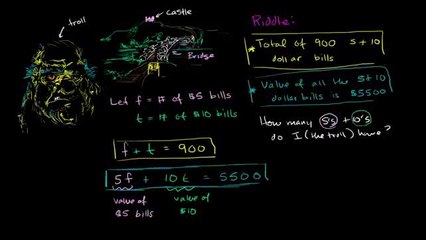 troll
castle
Bridge
Riddle:
* Total of 900 5 + 10
dollar bills
* Value of all the 5+10
dollar bills is $5500
How many 5's + 10's
do I (the troll) have?
Let f = # of $5 bills
t = # of $10 bills
f + t = 900
5f + 10t = 5500
value of
$5 bills
value of
$10